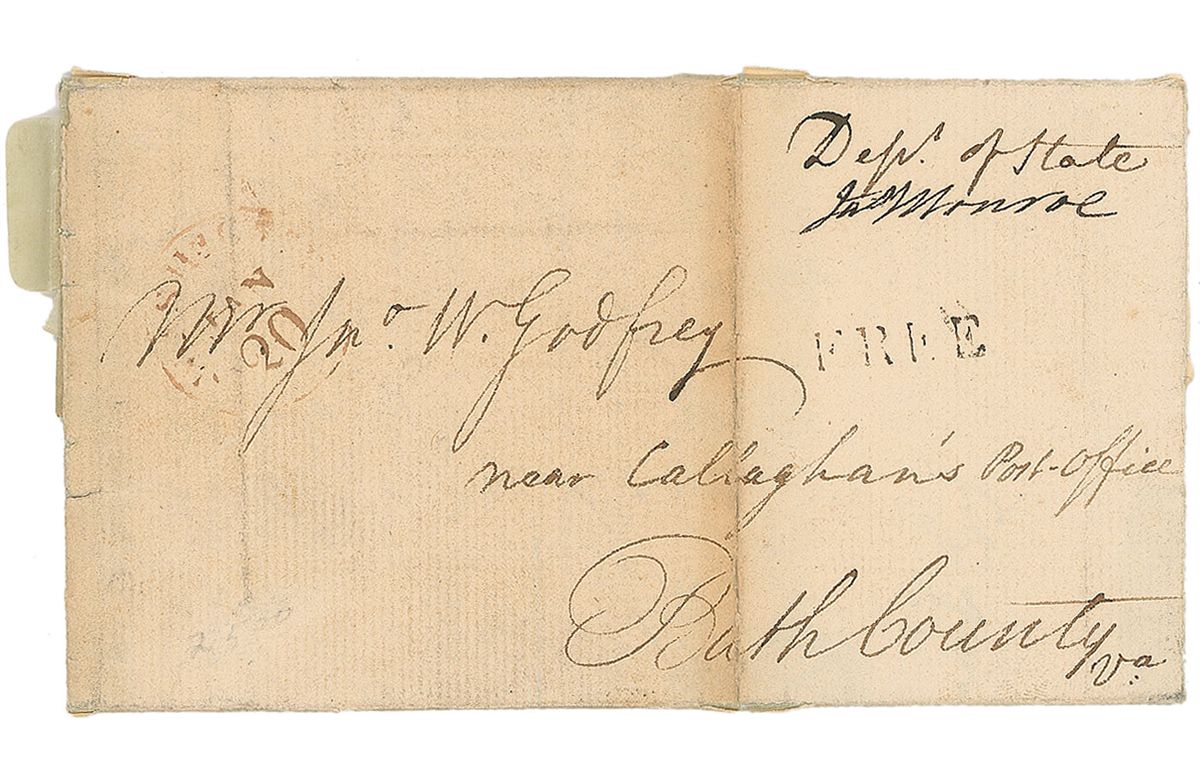 Dept. of State
Jas Monroe
20
Mr Jno. W. Godfrey
FREE
near Callaghan's Post-Office
Bath County
Va.